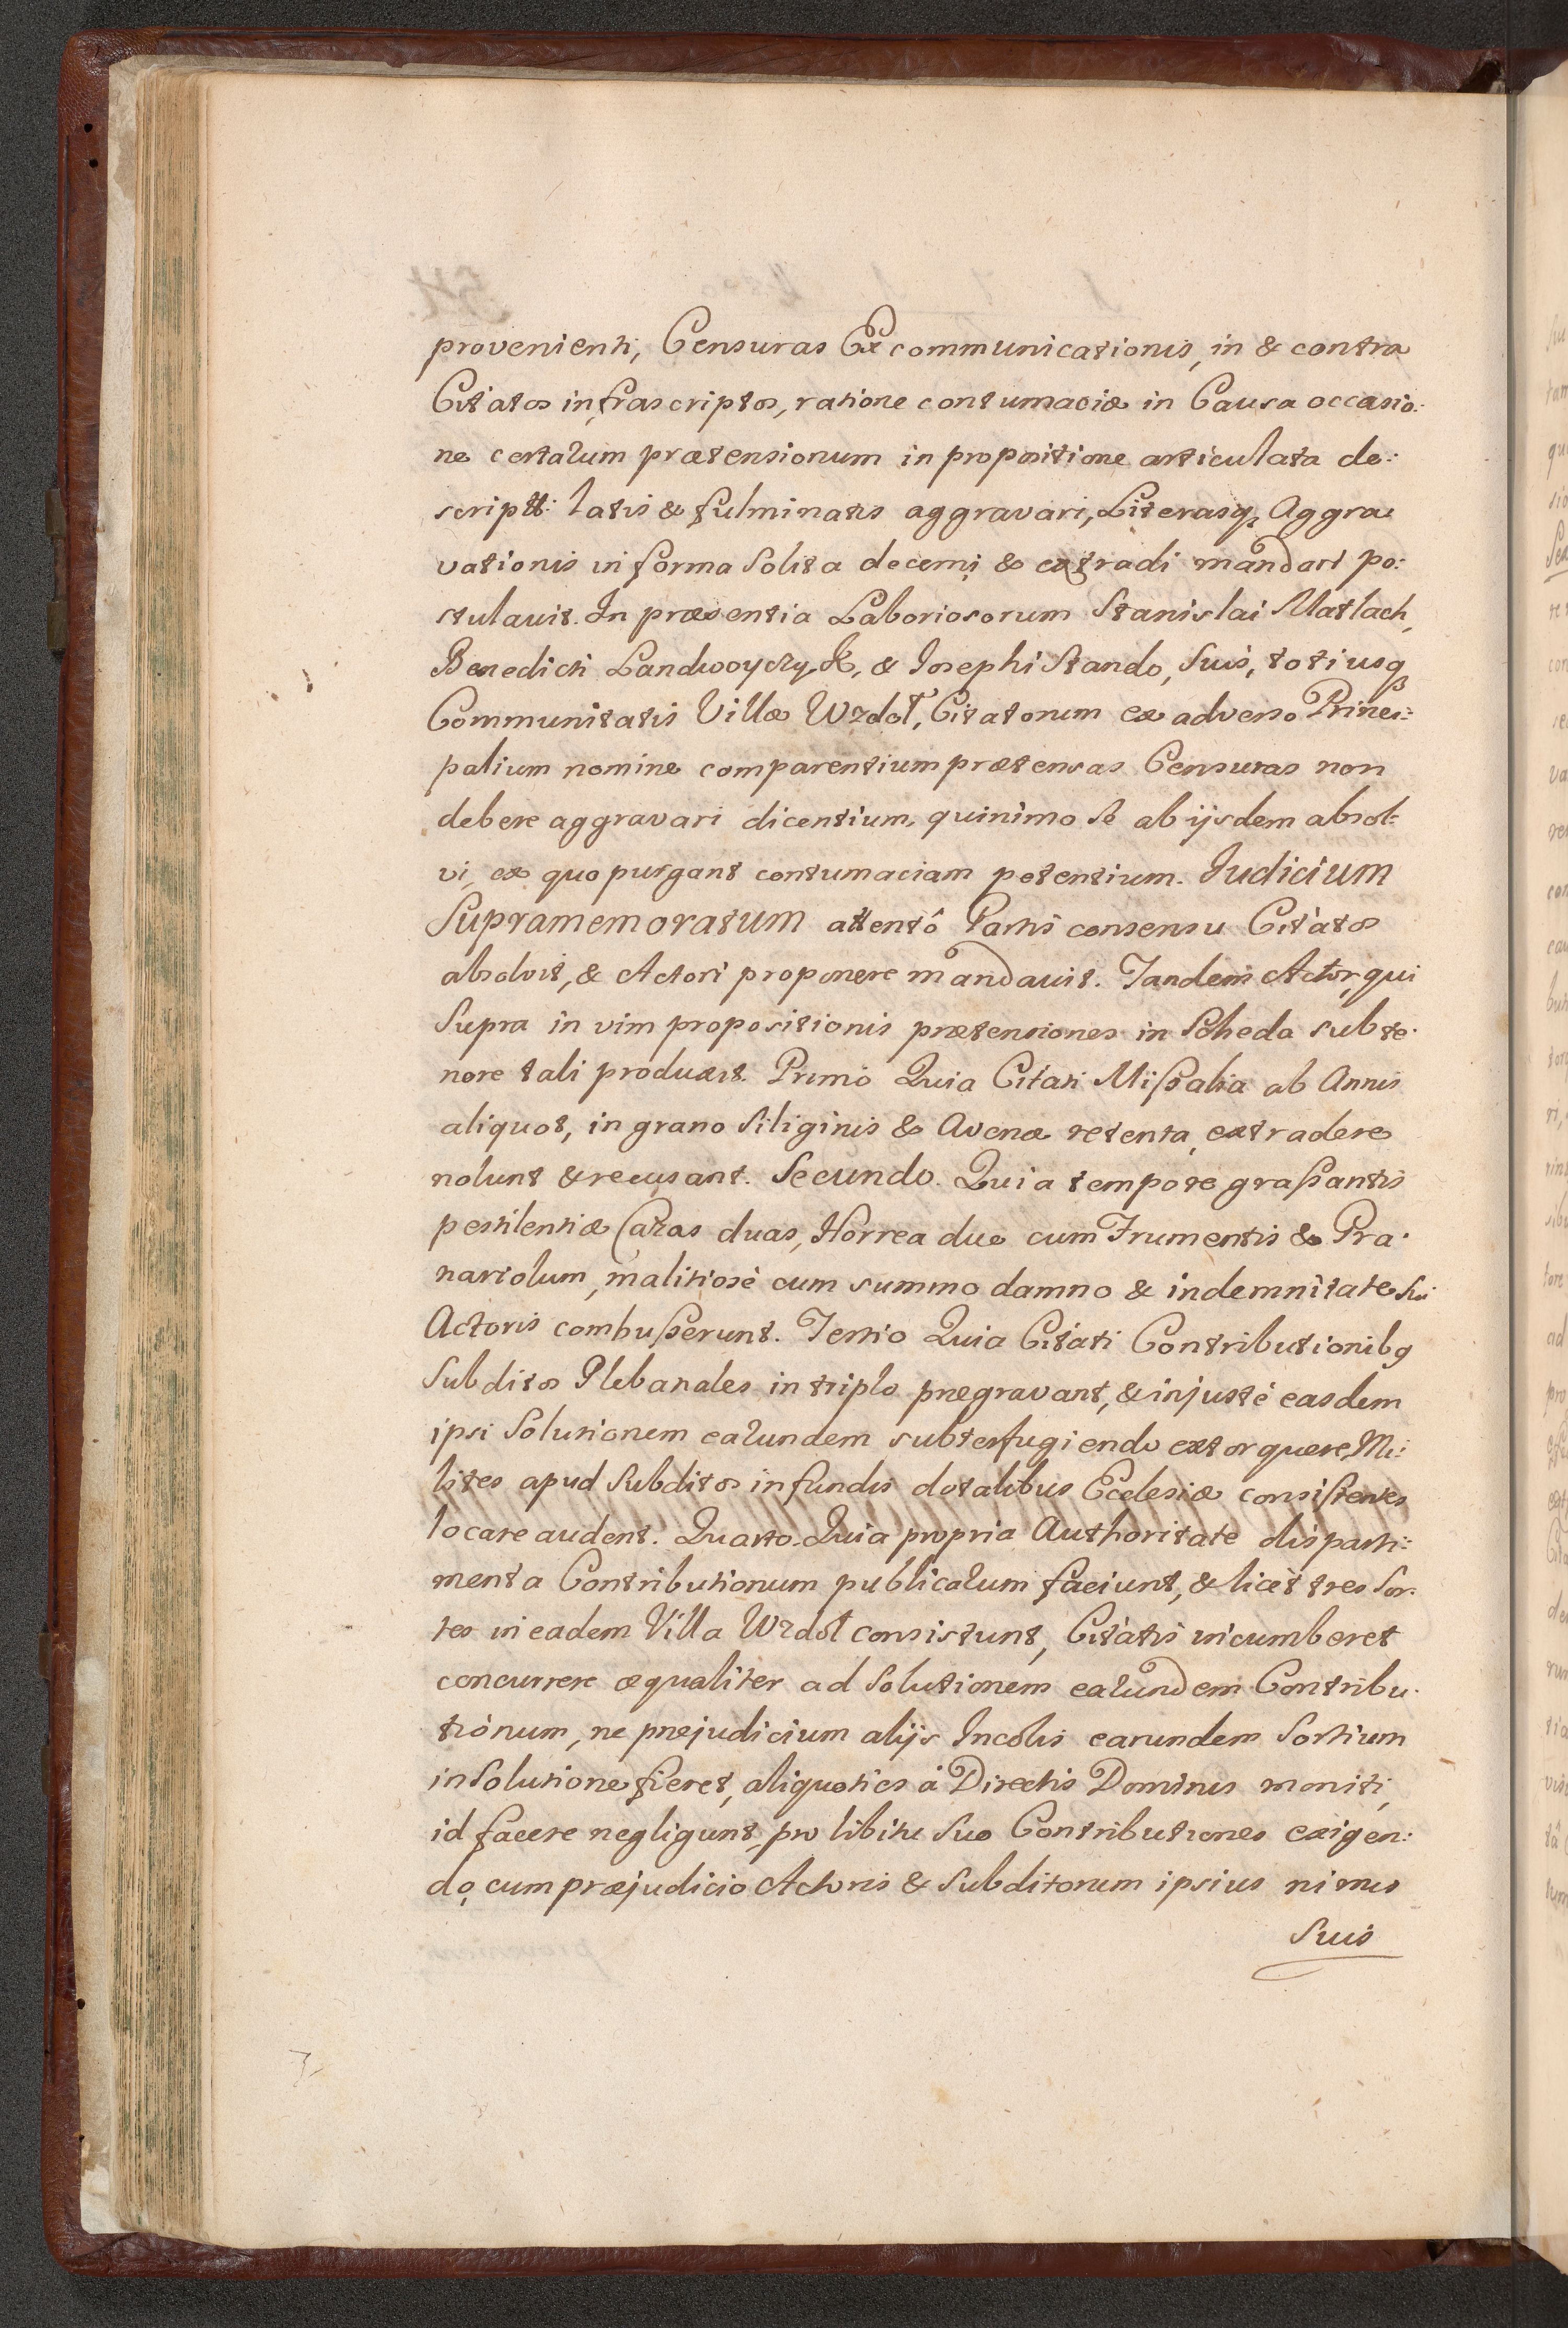 provenienti, Censuras Excommunicationis, in & contra
Citatos infrascriptos, ratione contumaciæ in Causa occasio:
ne certarum prætensionum in propositione articulata de:
scriptt: latis & fulminatis aggravari, Literasq, Aggra
vationis in forma solita decerni & extradi mandari po:
stulavit. In præsentia Laboriosorum Stanislai Matlach,
Benedicti & Josephi Stando, suis, totiusq
Communitatis Villæ Wzdoł, Citatorum ex adverso Princi:
palium nomine comparentium prætensas Censuras non
debere aggravari dicentium, quinimo se ab ijsdem absol:
vi, ex quo purgant contumaciam petentium. Judicium
Supramemoratum attentô Partis consensu Citatos
absolvit, & Actori proponere mandavit. Tandem Actor, qui
supra in vim propositionis prætensiones in Scheda sub te.
nore tali produxit. Primò Quia Citati Missalia ab Annis
aliquot, in grano Siliginis & Avenæ retenta, extradere
nolunt & recusant. Secundo. Quia tempore grassantis
pestilentiæ Casas duas, Horrea duo cum Frumentis & Gra.
nariolum, malitiosè cum summo damno & indemnitate sui
Actoris combusserunt. Tertio Quia Citati Contributionibq
Subditos Plebanales in triplo prægravant, & injustè easdem
ipsi Solutionem earundem subterfugiendo extorquere, Mi:
lites apud Subditos in fundis dotalibus Ecclesiæ consistentes
locare audent. Quarto. Quia propria Authoritate disparti:
menta Contributionum publicarum faciunt, & licèt tres Sor.
tes in eadem Villa Wzdoł consistunt, Citatis incumberet
concurrere æqualiter ad Solutionem earundem Contribu.
tionum, ne præjudicium alijs Incolis earundem Sortium
in Solutione fieret, aliquoties à Directis Dominis moniti,
id facere negligunt, pro libitu suo Contributiones exigen:
do, cum præjudicio Actoris & Subditorum ipsius nimis
suis